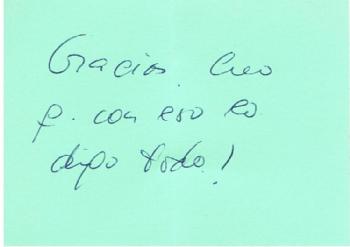 Gracias. Creo
q. con eso lo
digo todo!